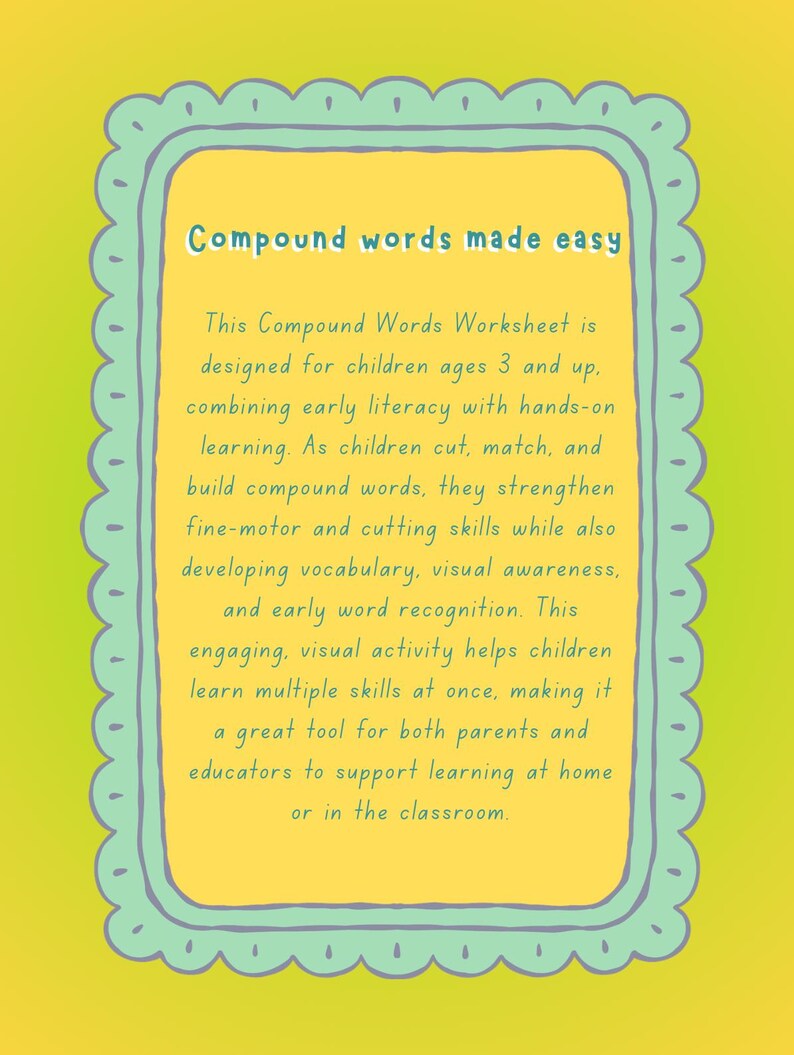 Compound words made easy
This Compound Words Worksheet is
designed for children ages 3 and up,
combining early literacy with hands-on
learning. As children cut, match, and
build compound words, they strengthen
fine-motor and cutting skills while also
developing vocabulary, visual awareness,
and early word recognition. This
engaging, visual activity helps children
learn multiple skills at once, making it
a great tool for both parents and
educators to support learning at home
or in the classroom.